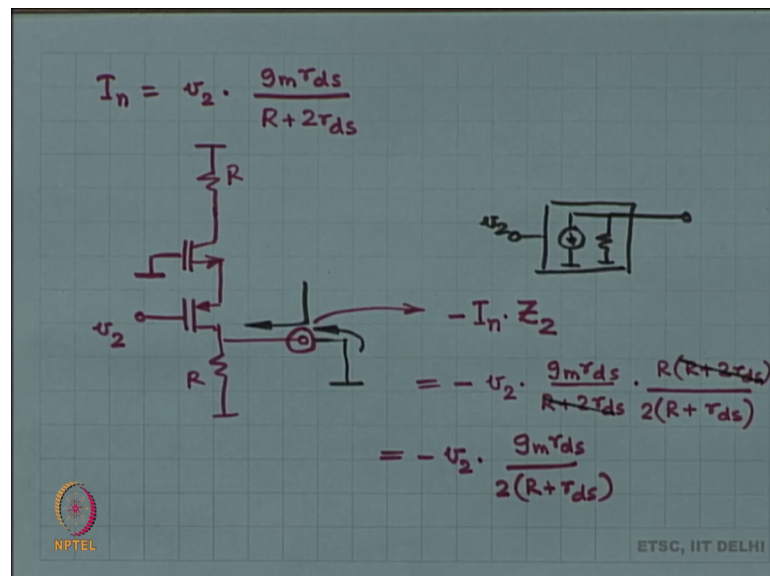 I_n = v_2 · g_m r_ds / (R + 2r_ds)
R
v_2
v_2
R
-I_n · Z_2
= - v_2 · g_m r_ds / (R + 2r_ds) · R(R + 2r_ds) / 2(R + r_ds)
= - v_2 · g_m r_ds / 2(R + r_ds)
NPTEL
ETSC, IIT DELHI